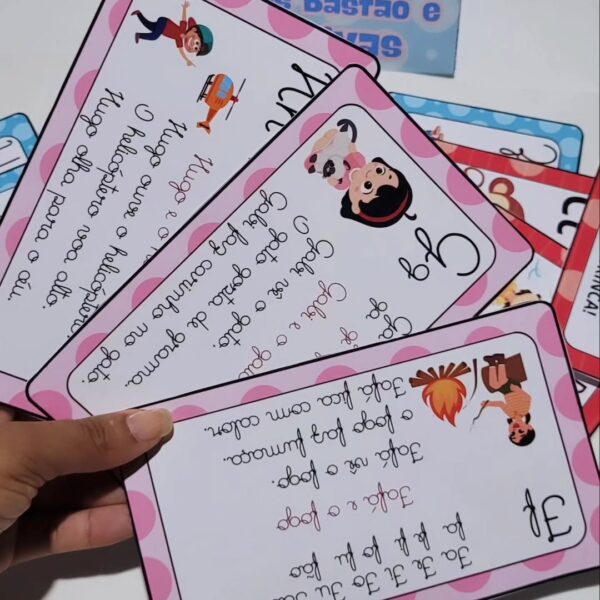 Hh
Hugo e o
Hugo ouve o helicóptero.
O helicóptero voa alto.
Hugo olha para o céu.
Gg
Ga
ga
Gabi e o gato
Gabi vê o gato.
O gato gosta de grama.
Gabi faz carinho no gato.
Ff
Fa Fe Fi Fo Fu Fão
fa fe fi fo fu fão
Fafá e o fogo
Fafá vê o fogo.
o fogo faz fumaça.
Fafá fica com calor.